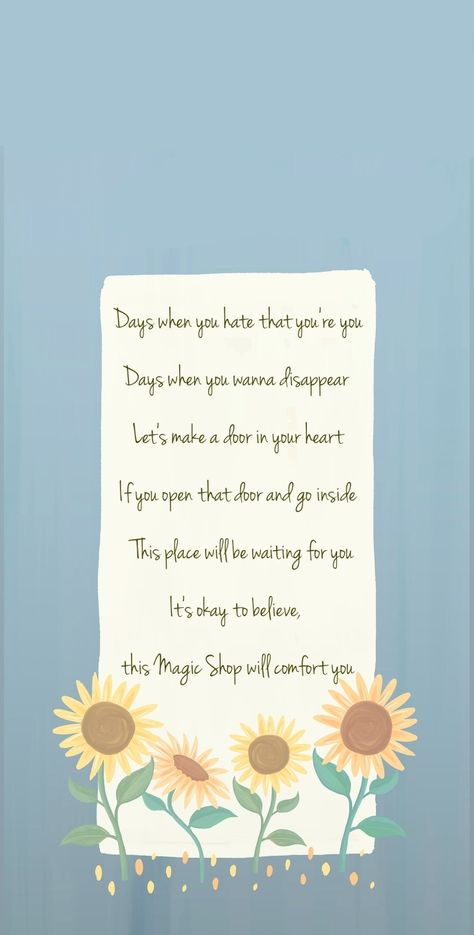 Days when you hate that you're you
Days when you wanna disappear
Let's make a door in your heart
If you open that door and go inside
This place will be waiting for you
It's okay to believe,
this Magic Shop will comfort you